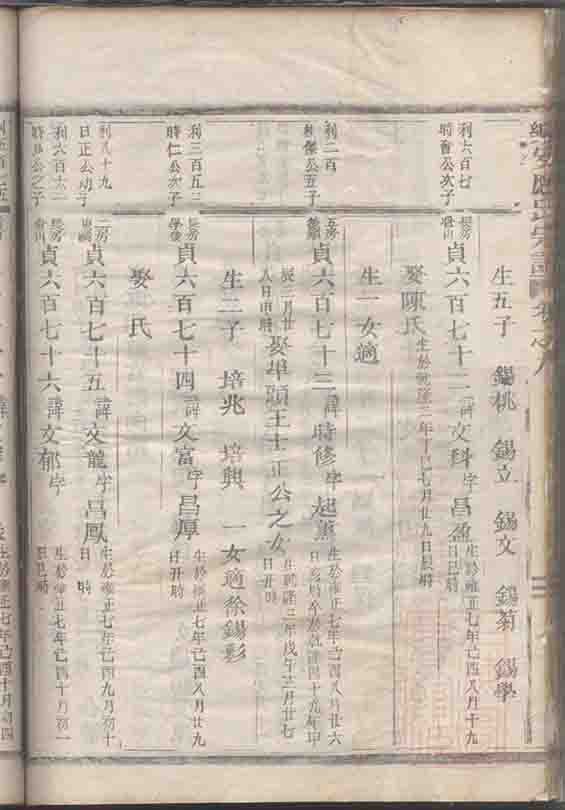 生五子 錫桃 錫立 錫文 錫菊 錫學
利六百七
時會公次子
長房
貞六百七十二諱文科字昌盈
生於雍正七年己酉八月十九
日巳時
娶陳氏
生於乾隆二年丁巳七月廿九日辰時
生一女適
利二百
公五子
五房
貞六百七十三諱時修字起蕙
生於雍正七年己酉八月廿六
日亥時卒於乾隆四十九年甲
辰二月廿
八日申時
娶埠頭王士正公之女
生乾隆三年戊午十二月廿七
日丑時
生二子 培兆 培興 一女適徐錫彭
利三百五三
時仁公次子
長房
貞六百七十四諱文富字昌厚
生於雍正七年己酉八月廿九
日丑時
娶 氏
利八十九
日正公幼子
二房
貞六百七十五諱文龍字昌鳳
生於雍正七年己酉九月初十
日 時
利六百六二
公之子
長房
貞六百七十六諱文郁字
生於雍正七年己酉十月初一
日巳時
生於雍正七年己酉十月初四